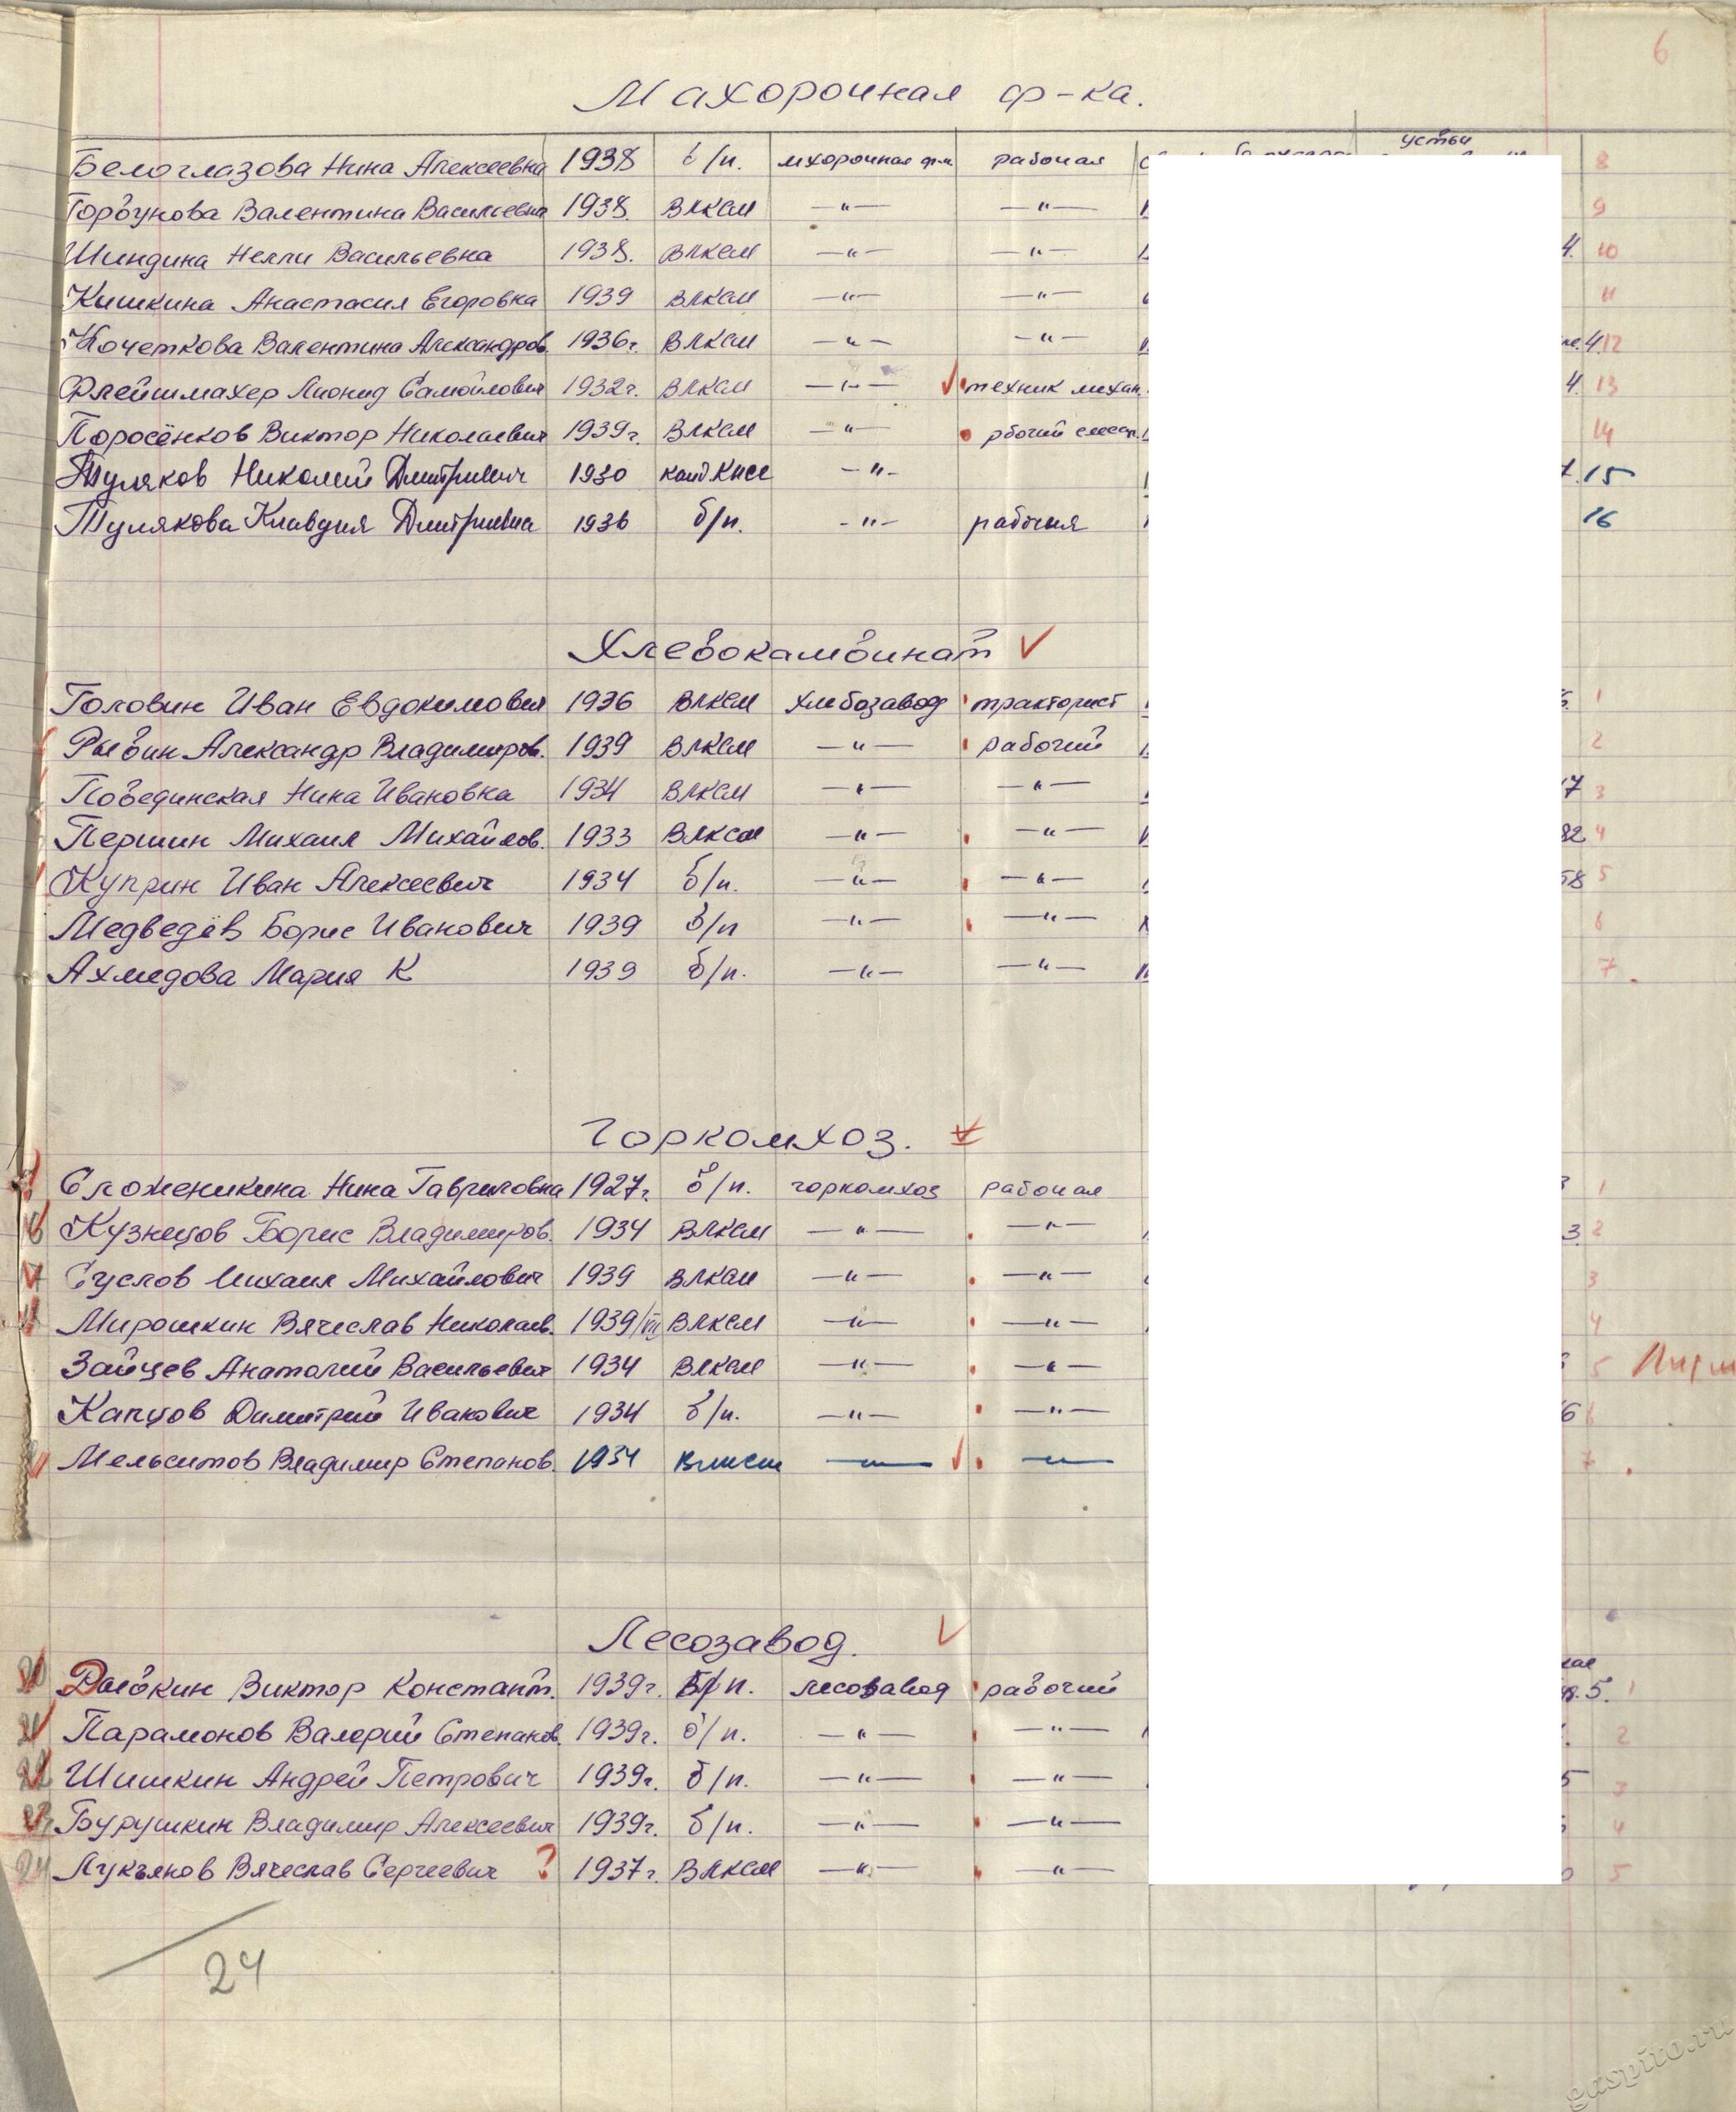 6
Махорочная ф-ка.
устьи
Белоглазова Нина Алексеевна 1938 б/п. мхорочная ф-ка рабочая 8
Горбунова Валентина Васильевна 1938. ВЛКСМ —"— —"— 9
Шиндина Нелли Васильевна 1938. ВЛКСМ —"— —"— 4. 10
Кишкина Анастасия Егоровна 1939 ВЛКСМ —"— —"— 11
Кочеткова Валентина Александров. 1936г. ВЛКСМ —"— —"— 4. 12
Флейшмахер Лионид Самойлович 1932г. ВЛКСМ —"— техник механ. 4. 13
Поросёнков Виктор Николаевич 1939г. ВЛКСМ —"— рбочий слесар. 14
Туляков Николай Дмитриевич 1930 канд КПСС —"— 15
Тулякова Клавдия Дмитриевна 1936 б/п. —"— рабочая 16
Хлебокамбинат
Головин Иван Евдокимович 1936 ВЛКСМ хлебозавод тракторист 1
Рыбин Александр Владимиров. 1939 ВЛКСМ —"— рабочий 2
Побединская Нина Ивановна 1934 ВЛКСМ —"— —"— 7 3
Першин Михаил Михайлов. 1933 ВЛКСМ —"— —"— 82 4
Куприн Иван Алексеевич 1934 б/п. —"— —"— 58 5
Медведев Борис Иванович 1939 б/п —"— —"— 6
Ахмедова Мария К 1939 б/п. —"— —"— 7.
Горкомхоз.
Сложеникина Нина Гавриловна 1927г. б/п. горкомхоз рабочая 1
Кузнецов Борис Владимиров. 1934 ВЛКСМ —"— —"— 3. 2
Суслов Михаил Михайлович 1939 ВЛКСМ —"— —"— 3
Мирошкин Вячеслав Николаев. 1939/VII ВЛКСМ —"— —"— 4
Зайцев Анатолий Васильевич 1934 ВЛКСМ —"— —"— 5
Капцов Димитрий Иванович 1934 б/п. —"— —"— 6 6
Мельситов Владимир Степанов. 1934 ВЛКСМ —"— —"— 7
Лесозавод.
Рыбкин Виктор Констант. 1939г. Б/п. лесозавод рабочий 5. 1
21 Парамонов Валерий Степанов. 1939г. б/п. —"— —"— 2
22 Шишкин Андрей Петрович 1939г. б/п. —"— —"— 5 3
23 Бурушкин Владимир Алексеевич 1939г. б/п. —"— —"— 4
24 Лукьянов Вячеслав Сергеевич ? 1937г. ВЛКСМ —"— —"— 5
24
gaspito.ru